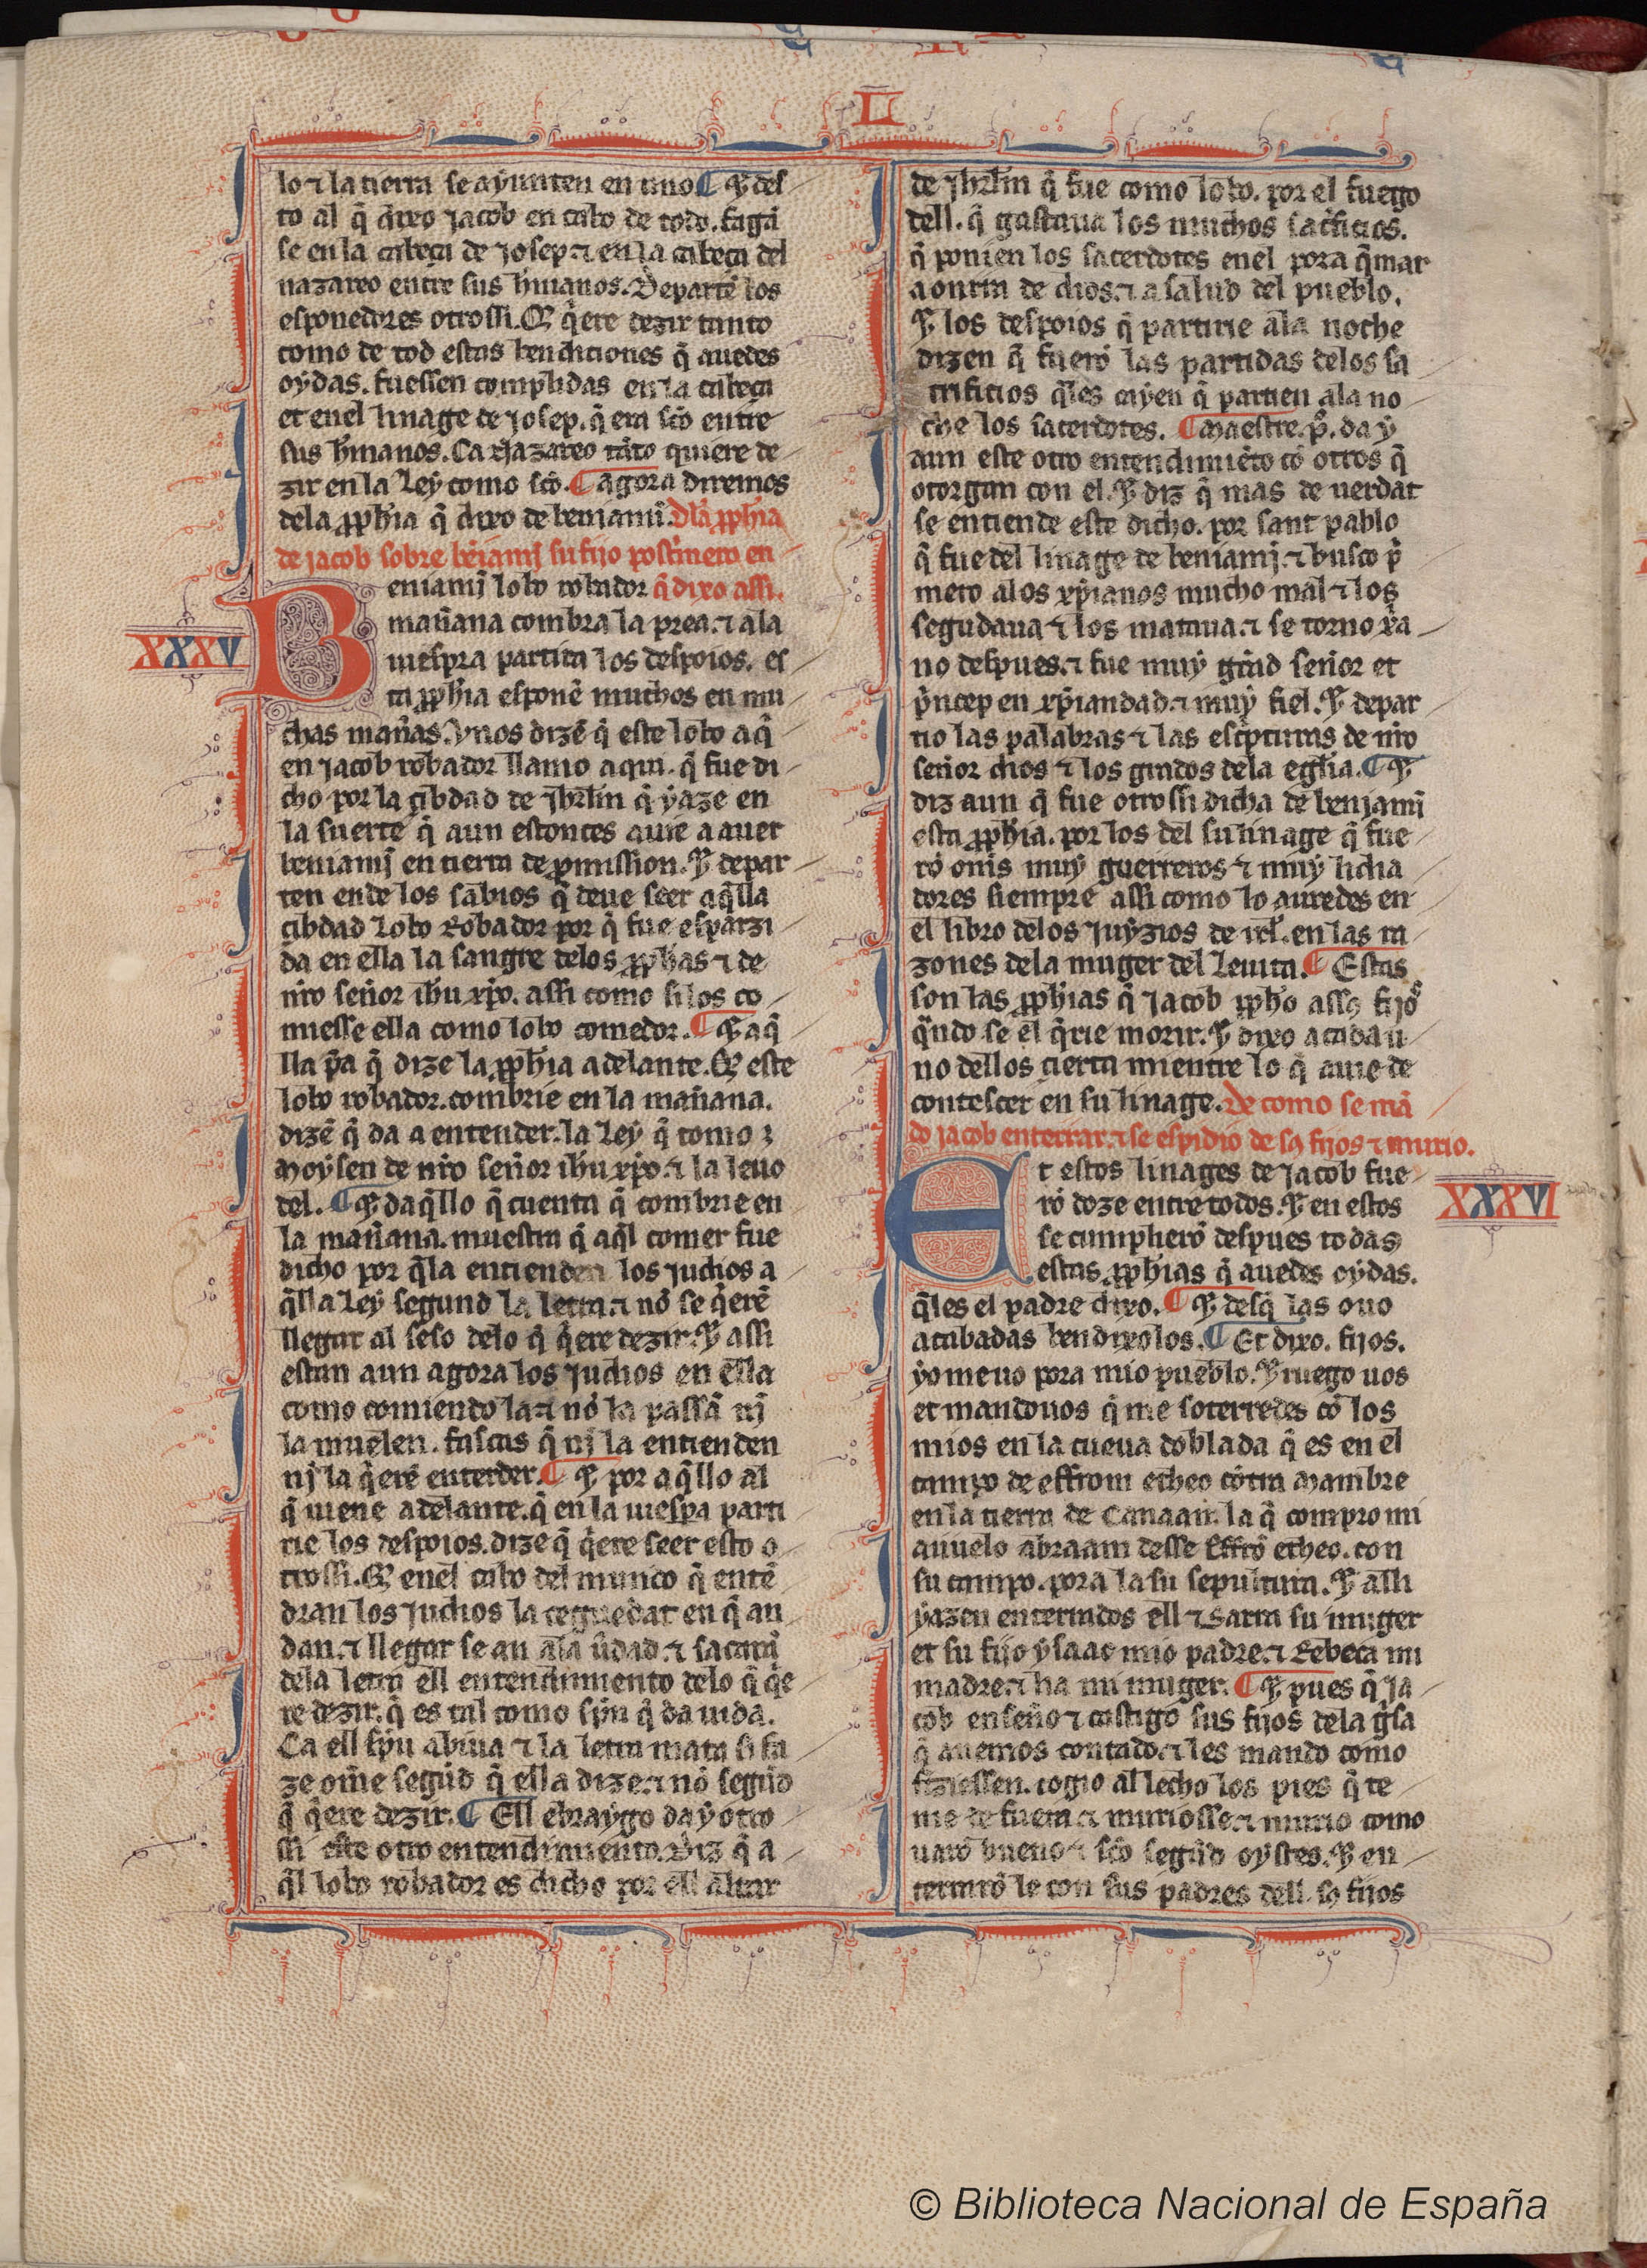 L
lo ⁊ la tierra se ayunten en uno ¶ Ꝫ des
to al q̃ dixo jacob en cabo de todo. faga
se en la cabeça de josep. ⁊ en la cabeça del
nazareo entre sus h̃manos. Departẽ los
esponedores otrossi. Q̃ q̃ere dezir tanto
como de tod estas bendiciones q̃ auedes
oydas. fuessen complidas en la cabeça
et enel linage de josep. q̃ era sc̃o entre
sus h̃manos. Ca Nazareo tãto quiere de
zir en la Ley como sc̃o. ¶ agora diremos
dela ꝓph̃ia q̃ dixo de beniamĩ. Dla ꝓph̃ia
de jacob sobre bẽiamj su fijo postⁱmero en
XXXV
Beniamj lobo robador q̃ dixo assi.
mañana combra la prea. ⁊ ala
uiespra partira los despoios. es
ta ꝓph̃ia esponẽ muchos en mu
chas mañas. Vnos dizẽ q̃ este lobo a q̃
en jacob robador llamo aqui. q̃ fue di
cho por la çibdad de jh̃rlm̃ q̃ yaze en
la suerte q̃ aun estonces auie a auer
beniamj en tierra de ꝓmission. Ꝫ depar
ten ende los sabios q̃ deue seer aq̃lla
çibdad lobo Robador por q̃ fue esparzi
da en ella la sangre delos ꝓph̃as ⁊ de
nr̃o señor ih̃u xp̃o. assi como si los co
miesse ella como lobo comedor. ¶ Ꝫ aq̃
lla p̃a q̃ dize la ꝓph̃ia adelante. Q̃ este
lobo robador. combrie en la mañana.
dizẽ q̃ da a entender. la Ley q̃ tomo ⁊
Moysen de nr̃o señor ih̃u xp̃o. ⁊ la leuo
del. ¶ Ꝫ daq̃llo q̃ cuenta q̃ combrie en
la mañana. muestra q̃ aq̃l comer fue
dicho por q̃la entienden los judios a
q̃lla Ley segund la letra. ⁊ nõ se q̃erẽ
llegar al seso delo q̃ q̃ere dezir. Ꝫ assi
estan aun agora los judios en ella
como comiendo la. ⁊ nõ la passã nj
la muelen. fascas q̃ nj la entienden
nj la q̃erẽ entender. ¶ Ꝫ por aq̃llo al
q̃ uiene adelante. q̃ en la uiespa parti
rie los despoios. dize q̃ q̃ere seer esto o
trossi. Q̃ enel cabo del mundo q̃ entẽ
dran los judios la ceguedat en q̃ an
dan. ⁊ llegar se an ala ũdad. ⁊ sacarã
dela letra ell entendimiento delo q̃ q̃e
re dezir. q̃ es tal como sp̃u q̃ da uida.
Ca ell sp̃u abiua ⁊ la letra mata si fa
ze om̃e segũd q̃ ella dize. ⁊ nõ segũd
q̃ q̃ere dezir. ¶ Ell ebraygo day otro
ssi este otro entendimiento. Diz q̃ a
q̃l lobo robador es dicho por ell altar
de jh̃rlm̃ q̃ fue como lobo. por el fuego
dell. q̃ gastaua los muchos sacⁱficios.
q̃ ponien los sacerdotes enel pora q̃mar
a onrra de dios. ⁊ a salud del pueblo.
Ꝫ los despoios q̃ partirie ala noche
dizen q̃ fuerõ las partidas delos sa
crificios q̃les cayen q̃ partien ala no
che los sacerdotes. ¶ Maestre. p̃. da y
aun este otro entendimiẽto cõ otros q̃
otorgan con el. Ꝫ diz q̃ mas de uerdat
se entiende este dicho. por sant pablo
q̃ fue del linage de beniamj. ⁊ busco pⁱ
mero alos xp̃ianos mucho mal ⁊ los
segudaua ⁊ los mataua. ⁊ se torno xr̃a
no despues. ⁊ fue muy grãd señor et
pⁱncep en xp̃iandad. ⁊ muy fiel. Ꝫ depar
tio las palabras ⁊ las escⁱpturas de nr̃o
señor dios ⁊ los grados dela egl̃ia. ¶ Ꝫ
diz aun q̃ fue otrossi dicha de benjamĩ
esta ꝓph̃ia. por los del su linage q̃ fue
rõ om̃s muy guerreros ⁊ muy lidia
dores siempre assi como lo auredes en
el libro delos Juyzios de irl̃. en las ra
zones dela muger del Leuita. ¶ Estas
son las ꝓph̃ias q̃ jacob ꝓph̃o assꝯ fijos
q̃ndo se el q̃rie morir. Ꝫ dixo a cada u
no dellos çierta mientre lo q̃ auie de
contescer en su linage. De como se mã
do jacob enterrar. ⁊ se espidio de sꝯ fijos ⁊ murio.
XXXVI
Et estos linages de jacob fue
rõ doze entre todos. Ꝫ en estos
se cumplierõ despues todas
estas ꝓph̃ias q̃ auedes oydas.
q̃les el padre dixo. ¶ Ꝫ desq̃ las ouo
acabadas bendixolos. ¶ Et dixo. fijos.
yo me uo pora mio pueblo. Ꝫ ruego uos
et mandouos q̃ me soterredes cõ los
mios en la cueua doblada q̃ es en el
campo de effrom etheo cõtra Mambre
en la tierra de Canaan. la q̃ compro mi
auuelo abraam desse Effrõ etheo. con
su campo. pora la su sepultura. Ꝫ alli
yazen enterrados ell ⁊ Sarra su muger
et su fijo ysaac mio padre. ⁊ Rebeca mi
madre. ⁊ lia mi muger. ¶ Ꝫ pues q̃ ja
cob enseño ⁊ castigo sus fijos dela gⁱsa
q̃ auemos contado. ⁊ les mando como
fiziessen. cogio al lecho los pies q̃ te
nie de fuera. ⁊ muriosse. ⁊ murio como
uarõ bueno ⁊ sc̃o segũd oystes. Ꝫ en
terrarõ le con sus padres dell. sꝯ fijos
© Biblioteca Nacional de España